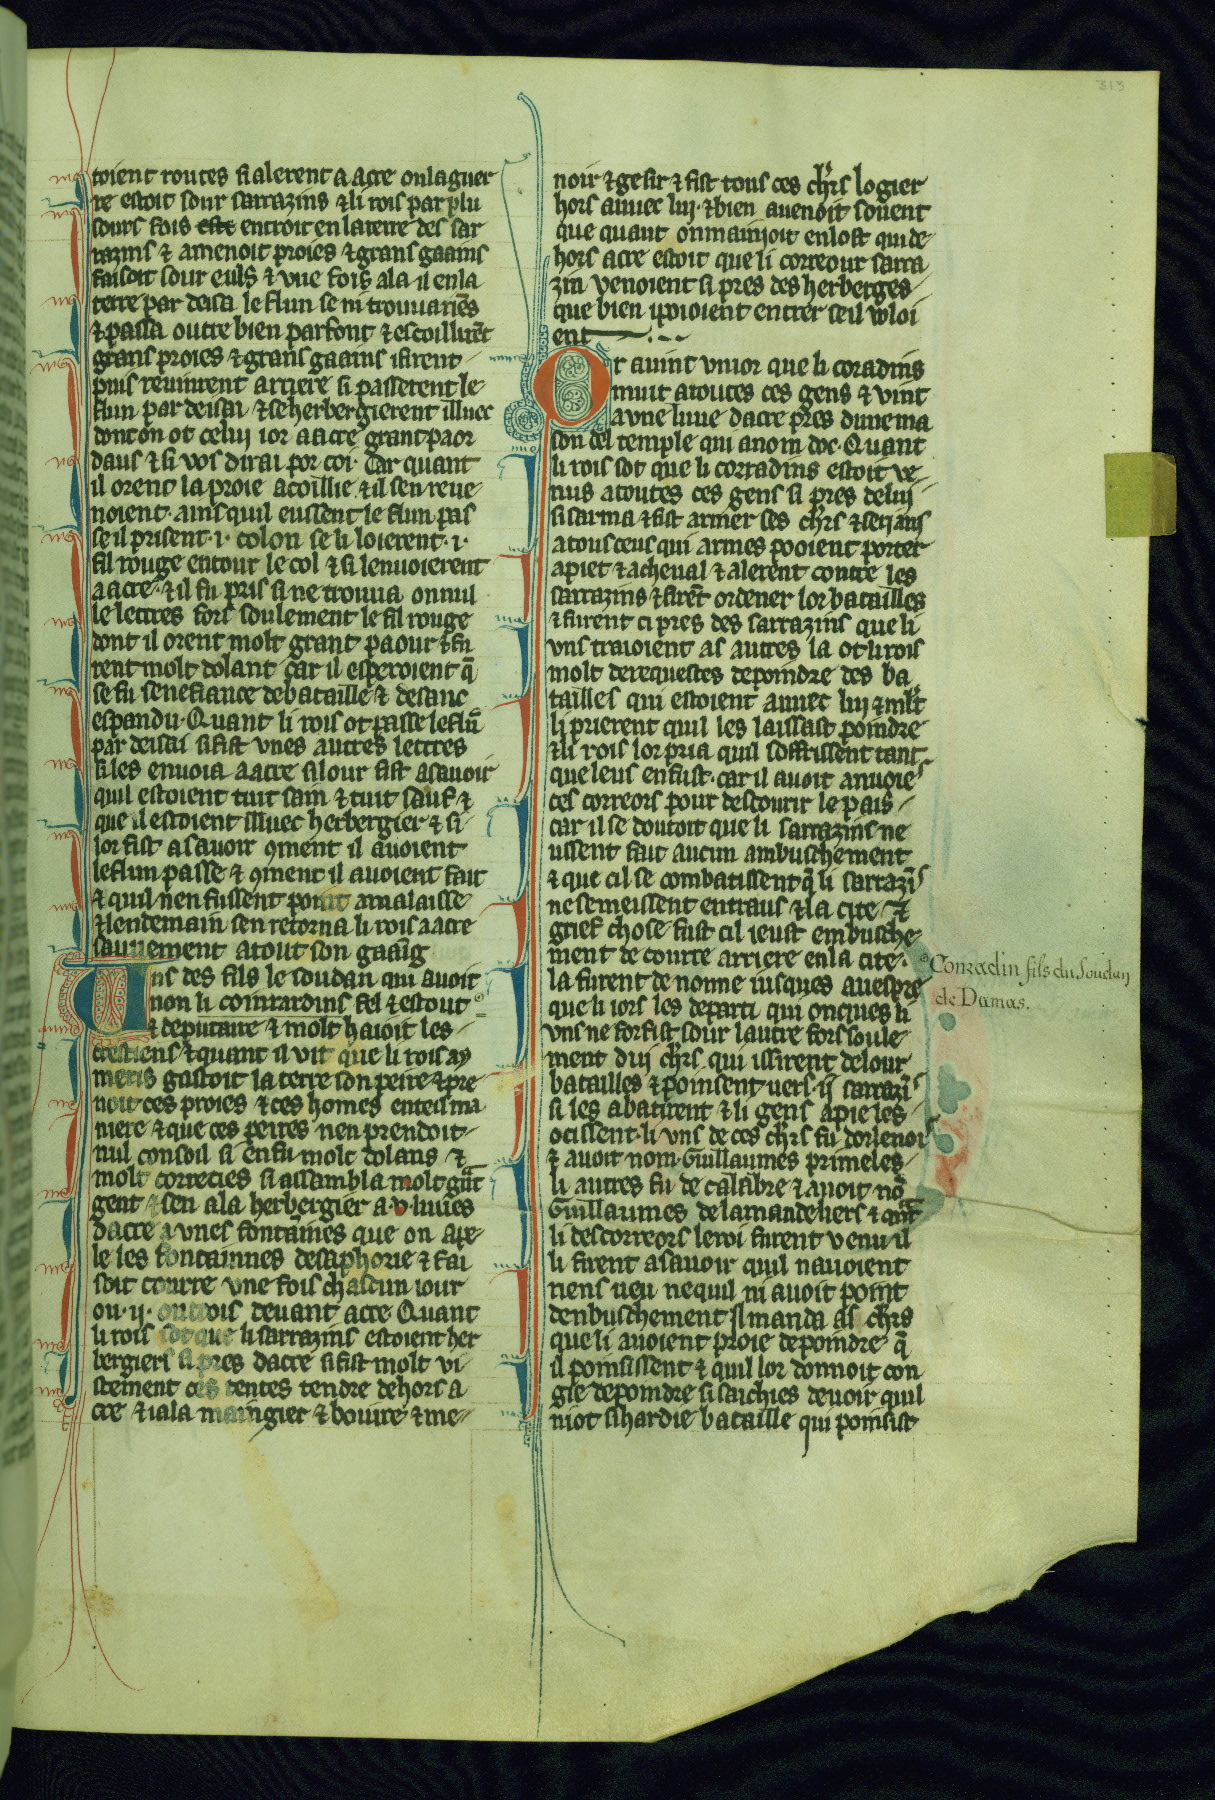 313
toient routes si alerent a acre ou la guer
re estoit sour sarrazins ⁊ li rois par plu
sours fois este entroit en la terre des sar
razins ⁊ amenoit proies ⁊ grans gaains
faisoit sour euls ⁊ vne fois ala il en la
terre par deca le flun se ni trouuariēs
⁊ passa outre bien parfont ⁊ escoillirēt
grans proies ⁊ grans gaains i firent
puis reuinrent arriere si passerent le
flun par deisai ⁊ se herbergierent illuec
dont on ot celui ior a acre grant paor
daus ⁊ si vos dirai por coi. Car quant
il orent la proie acoillie ⁊ il sen reue
noient ains quil eussent le flun pas
se il prisent .i. colon se li loierent .i.
fil rouge entour le col ⁊ si lenuoierent
a acre ⁊ il fu pris si ne trouua on nul
le lettres fors soulement le fil rouge
dont il orent molt grant paour ⁊ fu
rent molt dolant car il esperoient q̄
se fu senefiance de bataille ⁊ de sanc
espandu. Quant li rois ot passe le flū
par deisai si fist vnes autres lettres
si les enuoia a acre si lour fist asauoir
quil estoient tuit sain ⁊ tuit sauf ⁊
que il estoient illuec herbergier ⁊ si
lor fist asauoir ꝯment il auoient
le flun passe ⁊ ꝯment il auoient fait
⁊ quil nen fuissent point amalaisse
⁊ lendemain sen retorna li rois a acre
sauuement a tout son gaaig
Uns des fils le soudan qui auoit
non li conrardins fel ⁊ estout
⁊ deputaire ⁊ molt haioit les
crestiens ⁊ quant il vit que li rois ay
meris gastoit la terre son peire ⁊ pre
noit ces proies ⁊ ces homes en teil ma
niere ⁊ que ces peires nen prendoit
nul consoil si en fu molt dolans ⁊
molt correcies si aissambla molt gr̄āt
gent ⁊ sen ala herbergier a .v. liuies
dacre a vnes fontainnes que on ape
le les fontainnes de saphorie ⁊ fai
soit courre vne fois chascun iour
ou .ij. ou trois deuant acre Quant
li rois sot que li sarrazins estoient her
bergiers si pres dacre si fist molt vi
stement ces tentes tendre dehors a
cre ⁊ i ala maingier ⁊ boiure ⁊ me
noir ⁊ gesir ⁊ fist tous ces ch̄rs logier
hors auuec lui ⁊ bien auenoit souent
que quant on mainjoit en lost qui de
hors acre estoit que li correour sarra
zin venoient si pres des herberges
que bien i pooient entrer seil voloi
ent
Or auint vn ior que li coradins
muit a toutes ces gens ⁊ vint
a vne liuue dacre pres dune ma
son del temple qui a nom doc. Quant
li rois sot que li corradins estoit ve
nus a toutes ces gens si pres de lui
si sarma ⁊ fist armer ses ch̄rs ⁊ serjans
a tous ceus qui armes pooient porter
a piet ⁊ a cheual ⁊ alerent contre les
sarrazins ⁊ firēt ordener lor batailles
⁊ furent ci pres des sarrazins que li
vns traioient as autres la ot li rois
molt de requestes de poindre des ba
tailles qui estoient auuec lui ⁊ mlt̄
li prierent quil les laissast poindre
⁊ li rois lor pria quil soffrissent tant
que leus en fust. car il auoit anuoie
ces correors pour descourir le pais
car il se doutoit que li sarrazins ne
ussent fait aucun ambuschement
⁊ que cil se combatissent q̄ li sarrazī
ne se meissent entraus ⁊ la cite ⁊
grief chose fust cil i eust embusche
ment de courre arriere en la cite.
la furent de nonne iusques a vespre
que li iors les departi qui onques li
vns ne forfist sour lautre fors soule
ment dui ch̄rs qui issirent de lour
batailles ⁊ poinsent vers .ij. sarrazī
si les abatirent ⁊ li gens a pie les
ocissent. li vns de ces ch̄rs fu dorlenois
⁊ auoit nom Guillaumes primeles
li autres fu de calabre ⁊ auoit nō
Guillaumes de lamandeliers ⁊ qn̄t
li descorreors le roi furent venu il
li firent asauoir quil nauoient
riens ueu ne quil ni auoit point
denbuschement Il manda as ch̄rs
que li auoient proie de poindre q̄
il poinsissent ⁊ quil lor donnoit con
gie de poindre si saichies de uoir quil
ni ot si hardie bataille qui poinsist
Conradin fils du Soudan
de Damas.